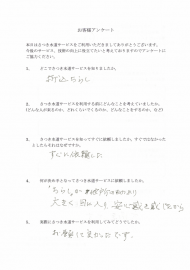 お客様アンケート
本日はさつき水道サービスをご利用いただきましてありがとうございます。
今後のサービス、技術の向上に役立てたいと考えておりますのでアンケートに
ご協力ください。
1. どこでさつき水道サービスを知りましたか。
折込ちらし
2. さつき水道サービスを利用する前にどんなことを考えていましたか。
(どんな人が来るのか、どれくらいで来るのか、どんなことをするのか、など)
3. さつき水道サービスを知ってすぐに依頼しましたか。すぐではなかった
としたらそれはなぜですか。
すぐに依頼した
4. 何が決め手となってさつき水道サービスに依頼しましたか。
ちらしが
大きく 安心感
5. 実際にさつき水道サービスを利用してみてどうでしたか。
お願いして良かったです